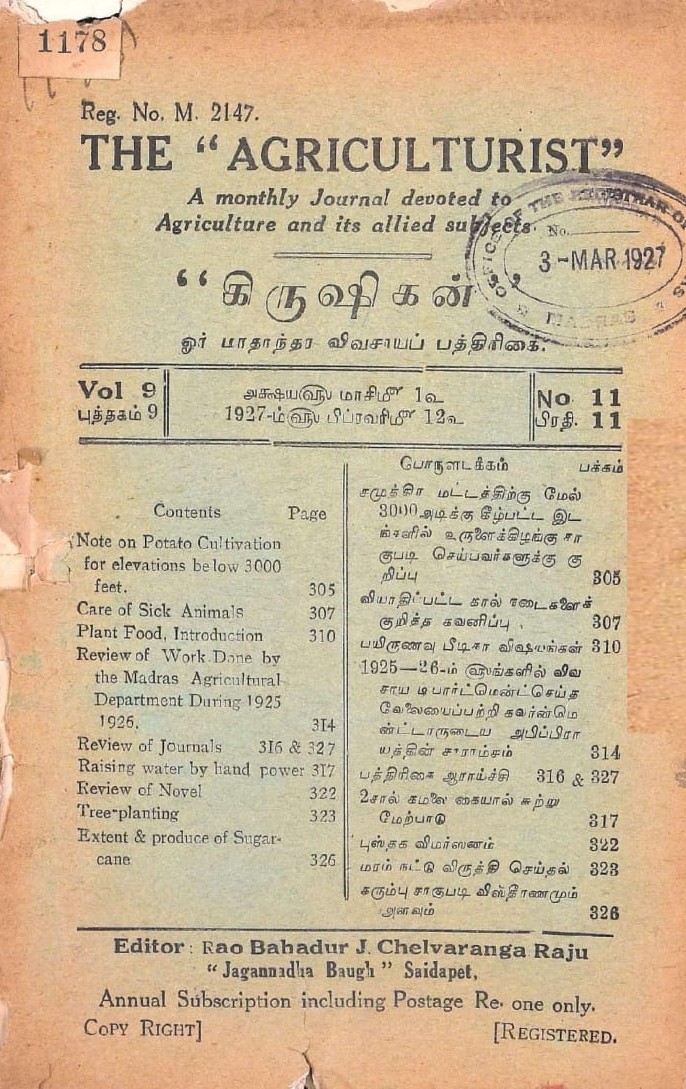 1178
Reg. No. M. 2147.
THE “AGRICULTURIST”
A monthly Journal devoted to
Agriculture and its allied subjects.
OFFICE OF THE REGISTRAR OF
No.
3-MAR 1927
MADRAS
“கிருஷிகன்”
ஓர் மாதாந்தர விவசாயப் பத்திரிகை.
Vol 9
புத்தகம் 9
அக்ஷயஹு மாசிமீ 1உ
1927-ம்ஹு பிப்ரவரிமீ 12உ
No 11
பிரதி. 11
Contents Page
Note on Potato Cultivation
for elevations below 3000
feet. 305
Care of Sick Animals 307
Plant Food, Introduction 310
Review of Work Done by
the Madras Agricultural
Department During 1925
1926. 314
Review of Journals 316 & 327
Raising water by hand power 317
Review of Novel 322
Tree-planting 323
Extent & produce of Sugar-
cane 326
பொருளடக்கம் பக்கம்
சமுத்திர மட்டத்திற்கு மேல்
3000 அடிக்கு கீழ்பட்ட இட
ங்களில் உருளைக்கிழங்கு சா
குபடி செய்பவர்களுக்கு கு
றிப்பு 305
வியாதிப்பட்ட கால்நடைகளைக்
குறித்த கவனிப்பு. 307
பயிருணவு பீடிகா விஷயங்கள் 310
1925—26-ம் ஹுங்களில் விவ
சாய டிபார்ட்மென்ட்செய்த
வேலையைப்பற்றி கவர்ன்மெ
ன்ட்டாருடைய அபிப்பிரா
யத்தின் சாராம்சம் 314
பத்திரிகை ஆராய்ச்சி 316 & 327
2சால் கமலை கையால் சுற்று
மேற்பாடு 317
புஸ்தக விமர்ஸனம் 322
மரம் நட்டு விருத்தி செய்தல் 323
கரும்பு சாகுபடி விஸ்தீரணமும்
அளவும் 326
Editor: Rao Bahadur J. Chelvaranga Raju
“Jagannadha Baugh” Saidapet,
Annual Subscription including Postage Re. one only.
COPY RIGHT] [REGISTERED.